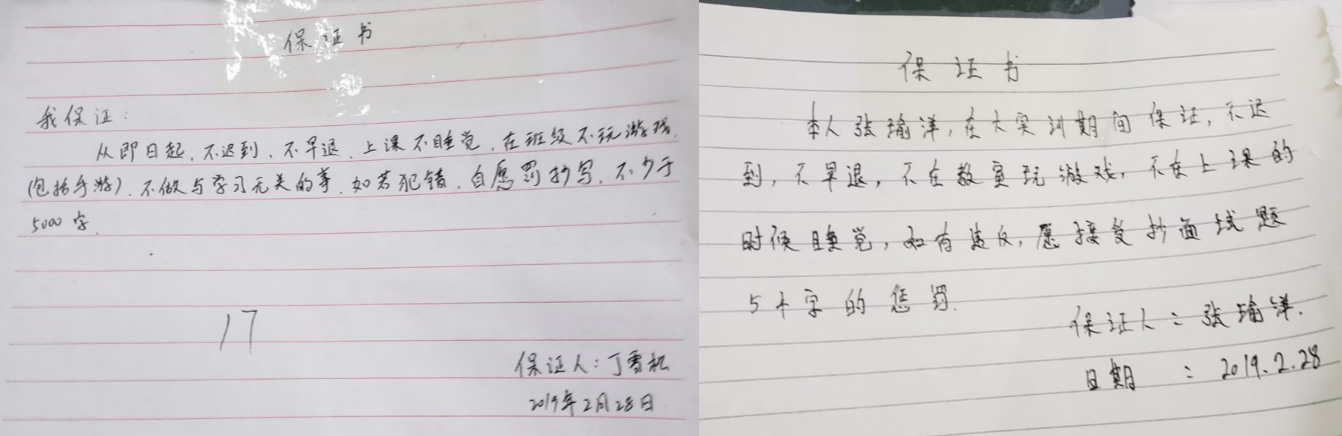 保证书
我保证：
从即日起，不迟到，不早退，上课不睡觉，在班级不玩游戏
(包括手游)，不做与学习无关的事，如若犯错，自愿罚抄写，不少于
5000字．
17
保证人：丁雪松
2019年2月28日
保证书
本人张瑜洋，在大实训期间保证，不迟
到，不早退，不在教室玩游戏，不在上课的
时候睡觉，如有违反，愿接受抄面试题
5千字的惩罚．
保证人：张瑜洋．
日期：2019.2.28